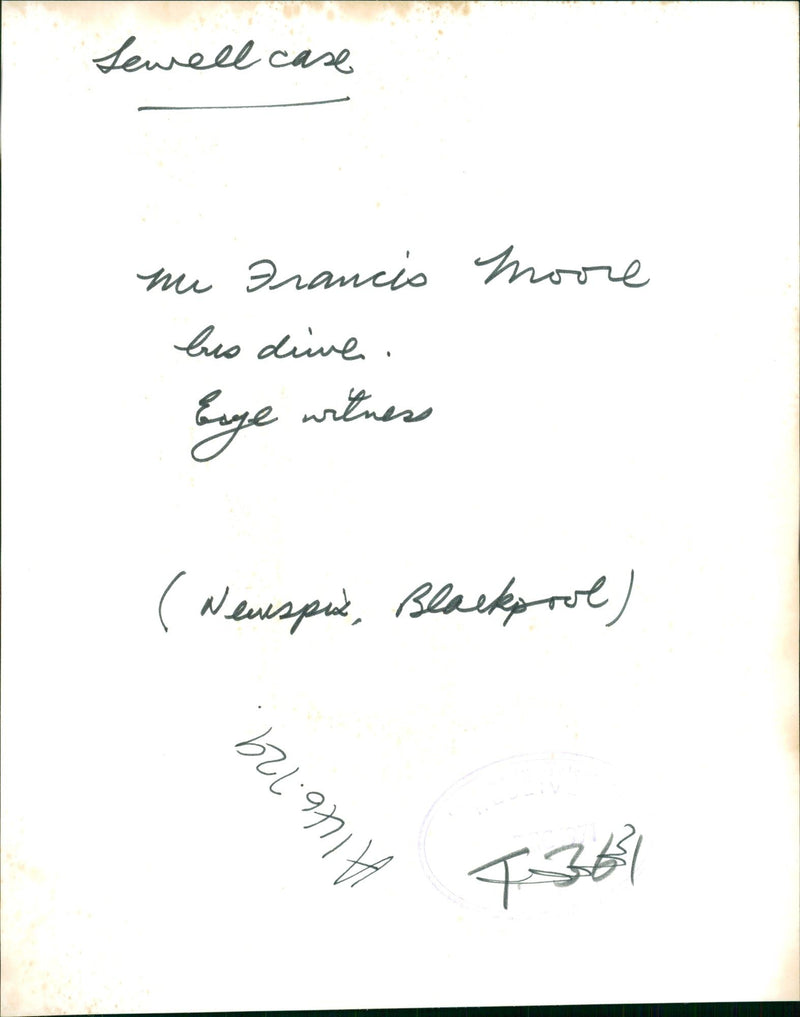 Sewell case
Mr Francis Moore
bus driver.
Eye witness
(Newspix, Blackpool)
A146.729